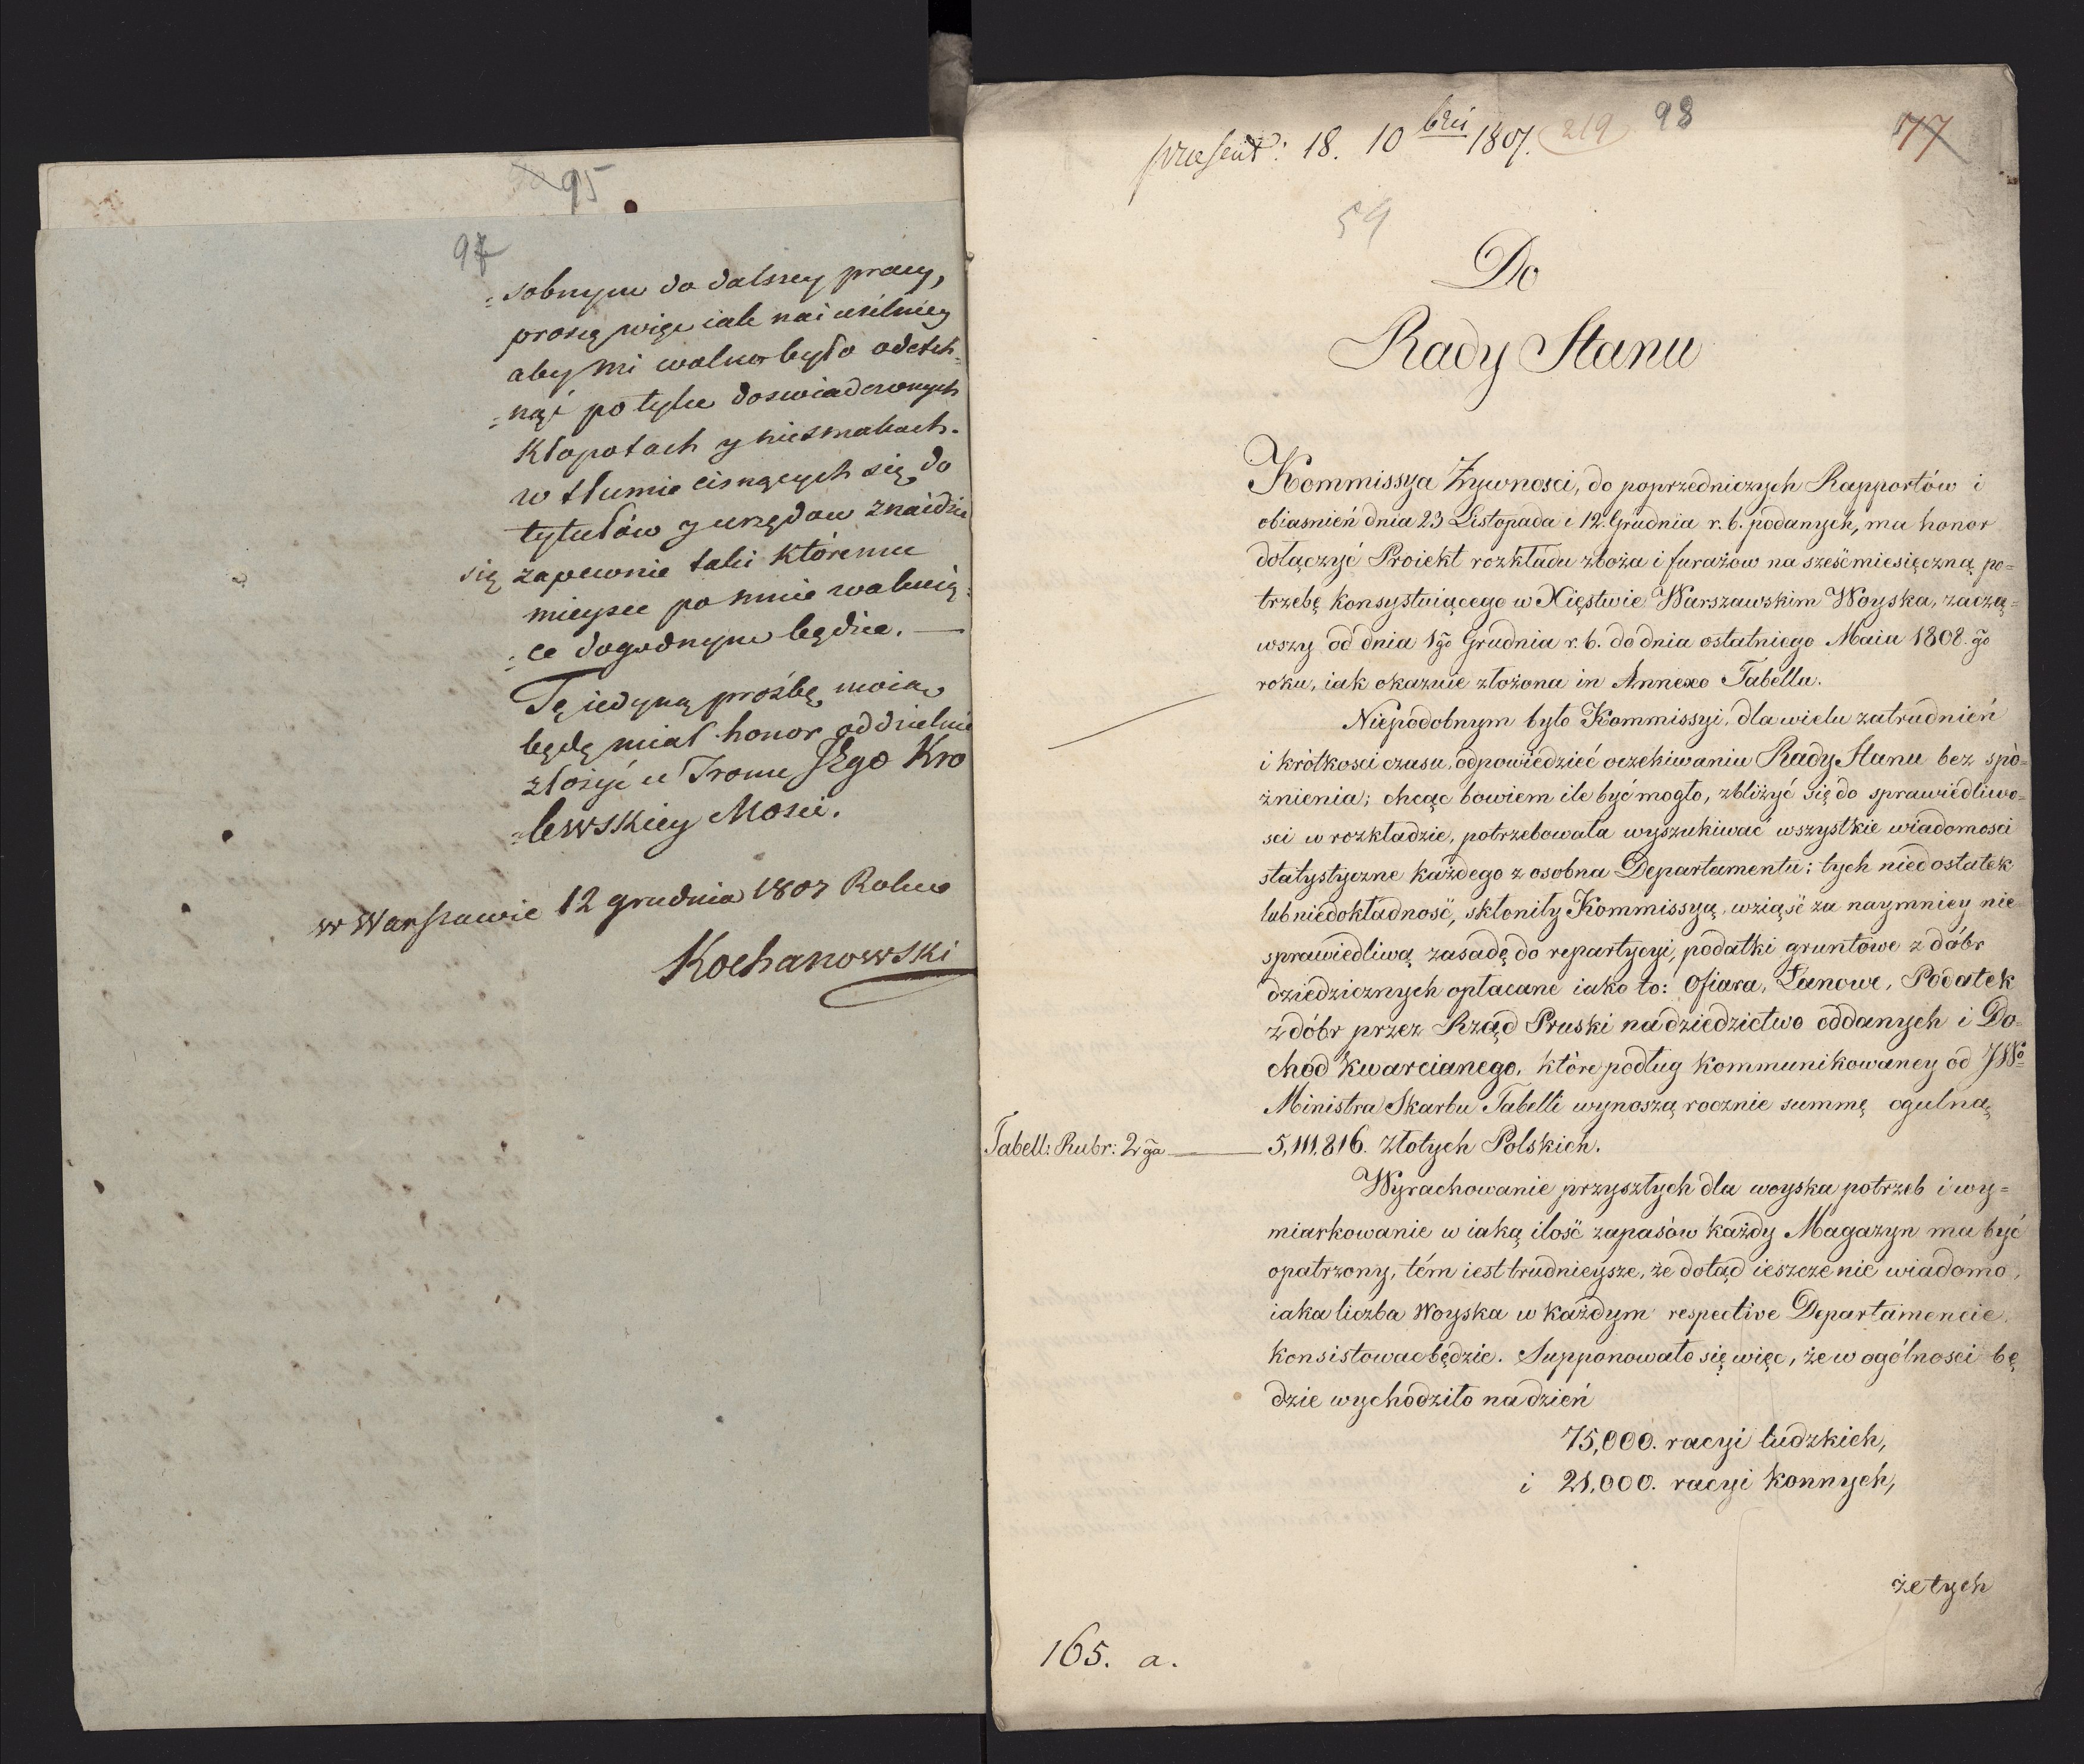 95
97
=sobnym do dalszey pracy,
proszę więc iak nai usilniey
aby mi wolno było odetch=
=nąć po tylu doswiadczonych
Kłopotach y niesmakach.
w tłumie cisnących się do
tytułów y urzędow znaidzie
się zapewnie taki któremu
mieysce po mnie walnią=
=ce dogodnym będzie. —
Tę iedyną prośbę moią
będę miał honor oddzielnie
złożyć u Tronu JEgo Kro
=lewskiey Mosci.
w Warszawie 12 grudnia 1807 Roku
Kochanowski
praesent: 18. 10 bris 1807. 219 98 77
59
Do
Rady Stanu
Kommissya Żywnosci, do poprzedniczych Rapportów i
obiasnień dnia 23 Listopada i 12. Grudnia r. b. podanych, ma honor
dołączyć Proiekt rozkładu zboża i furażow na sześciomiesięczną po=
trzebę konsystuiącego w Xięstwie Warszawskim Woyska, zaczą=
wszy od dnia 1go Grudnia r. b. do dnia ostatniego Maia 1808.go
roku, iak okazuie złożona in Annexo Tabella.
Niepodobnym było Kommissyi, dla wielu zatrudnień
i krótkosci czasu, odpowiedzieć oczekiwaniu Rady Stanu bez spò=
żnienia; chcąc bowiem ile być mogło, zbliżyć się do sprawiedliwo=
sci w rozkładzie, potrzebowała wyszukiwać wszystkie wiadomosci
statystyczne każdego z osobna Departamentu; tych niedostatek
lub niedokładność, skłoniły Kommissyą, wziąść za naymniey nie
sprawiedliwą zasadę do repartycyi, podatki gruntowe z dóbr
dziedzicznych opłacane iako to: Ofiara, Łanowe, Podatek
z dóbr przez Rząd Pruski na dziedzictwo oddanych i Do=
chód kwarcianego, które podług kommunikowaney od JWo
Ministra Skarbu Tabelli wynoszą rocznie summę ogulną
Tabell: Rubr: 2ga — 5,111,816. Złotych Polskich.
Wyrachowanie przyszłych dla woyska potrzeb i wy=
miarkowanie w iaką ilość zapasów każdy Magazyn ma być
opatrzony, tém iest trudnieysze, że dotąd ieszcze nie wiadomo,
iaka liczba Woyska w każdym respective Departamencie
konsistować będzie. Supponowało się więc, że w ogólnosci bę
dzie wychodziło na dzień
75,000. racyi ludzkich,
i 21,000. racyi konnych,
że tych
165. a.